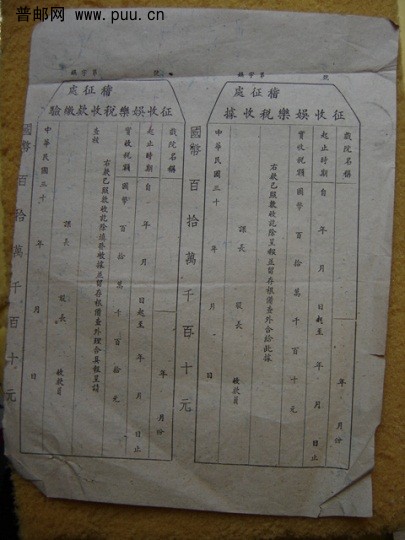 普邮网 www.puu.cn
字第 號
稽征處
征收娛樂稅收據
戲院名稱 年 月份
起止時期 自 年 月 日起至 年 月 日止
實收稅額 國幣 百 拾 萬 千 百 十 元
右款已照數收訖除呈報並留存根備查外合給此據
課長 股長 收款員
中華民國三十 年 月 日
國幣 百 拾 萬 千 百 十 元
字第 號
稽征處
征收娛樂稅收款繳驗
戲院名稱 年 月份
起止時期 自 年 月 日起至 年 月 日止
實收稅額 國幣 百 拾 萬 千 百 拾 元
右款已照數收訖除填發收據並留存根備查外理合具報呈請
查核
課長 股長 收款員
中華民國三十 年 月 日
國幣 百 拾 萬 千 百 十 元